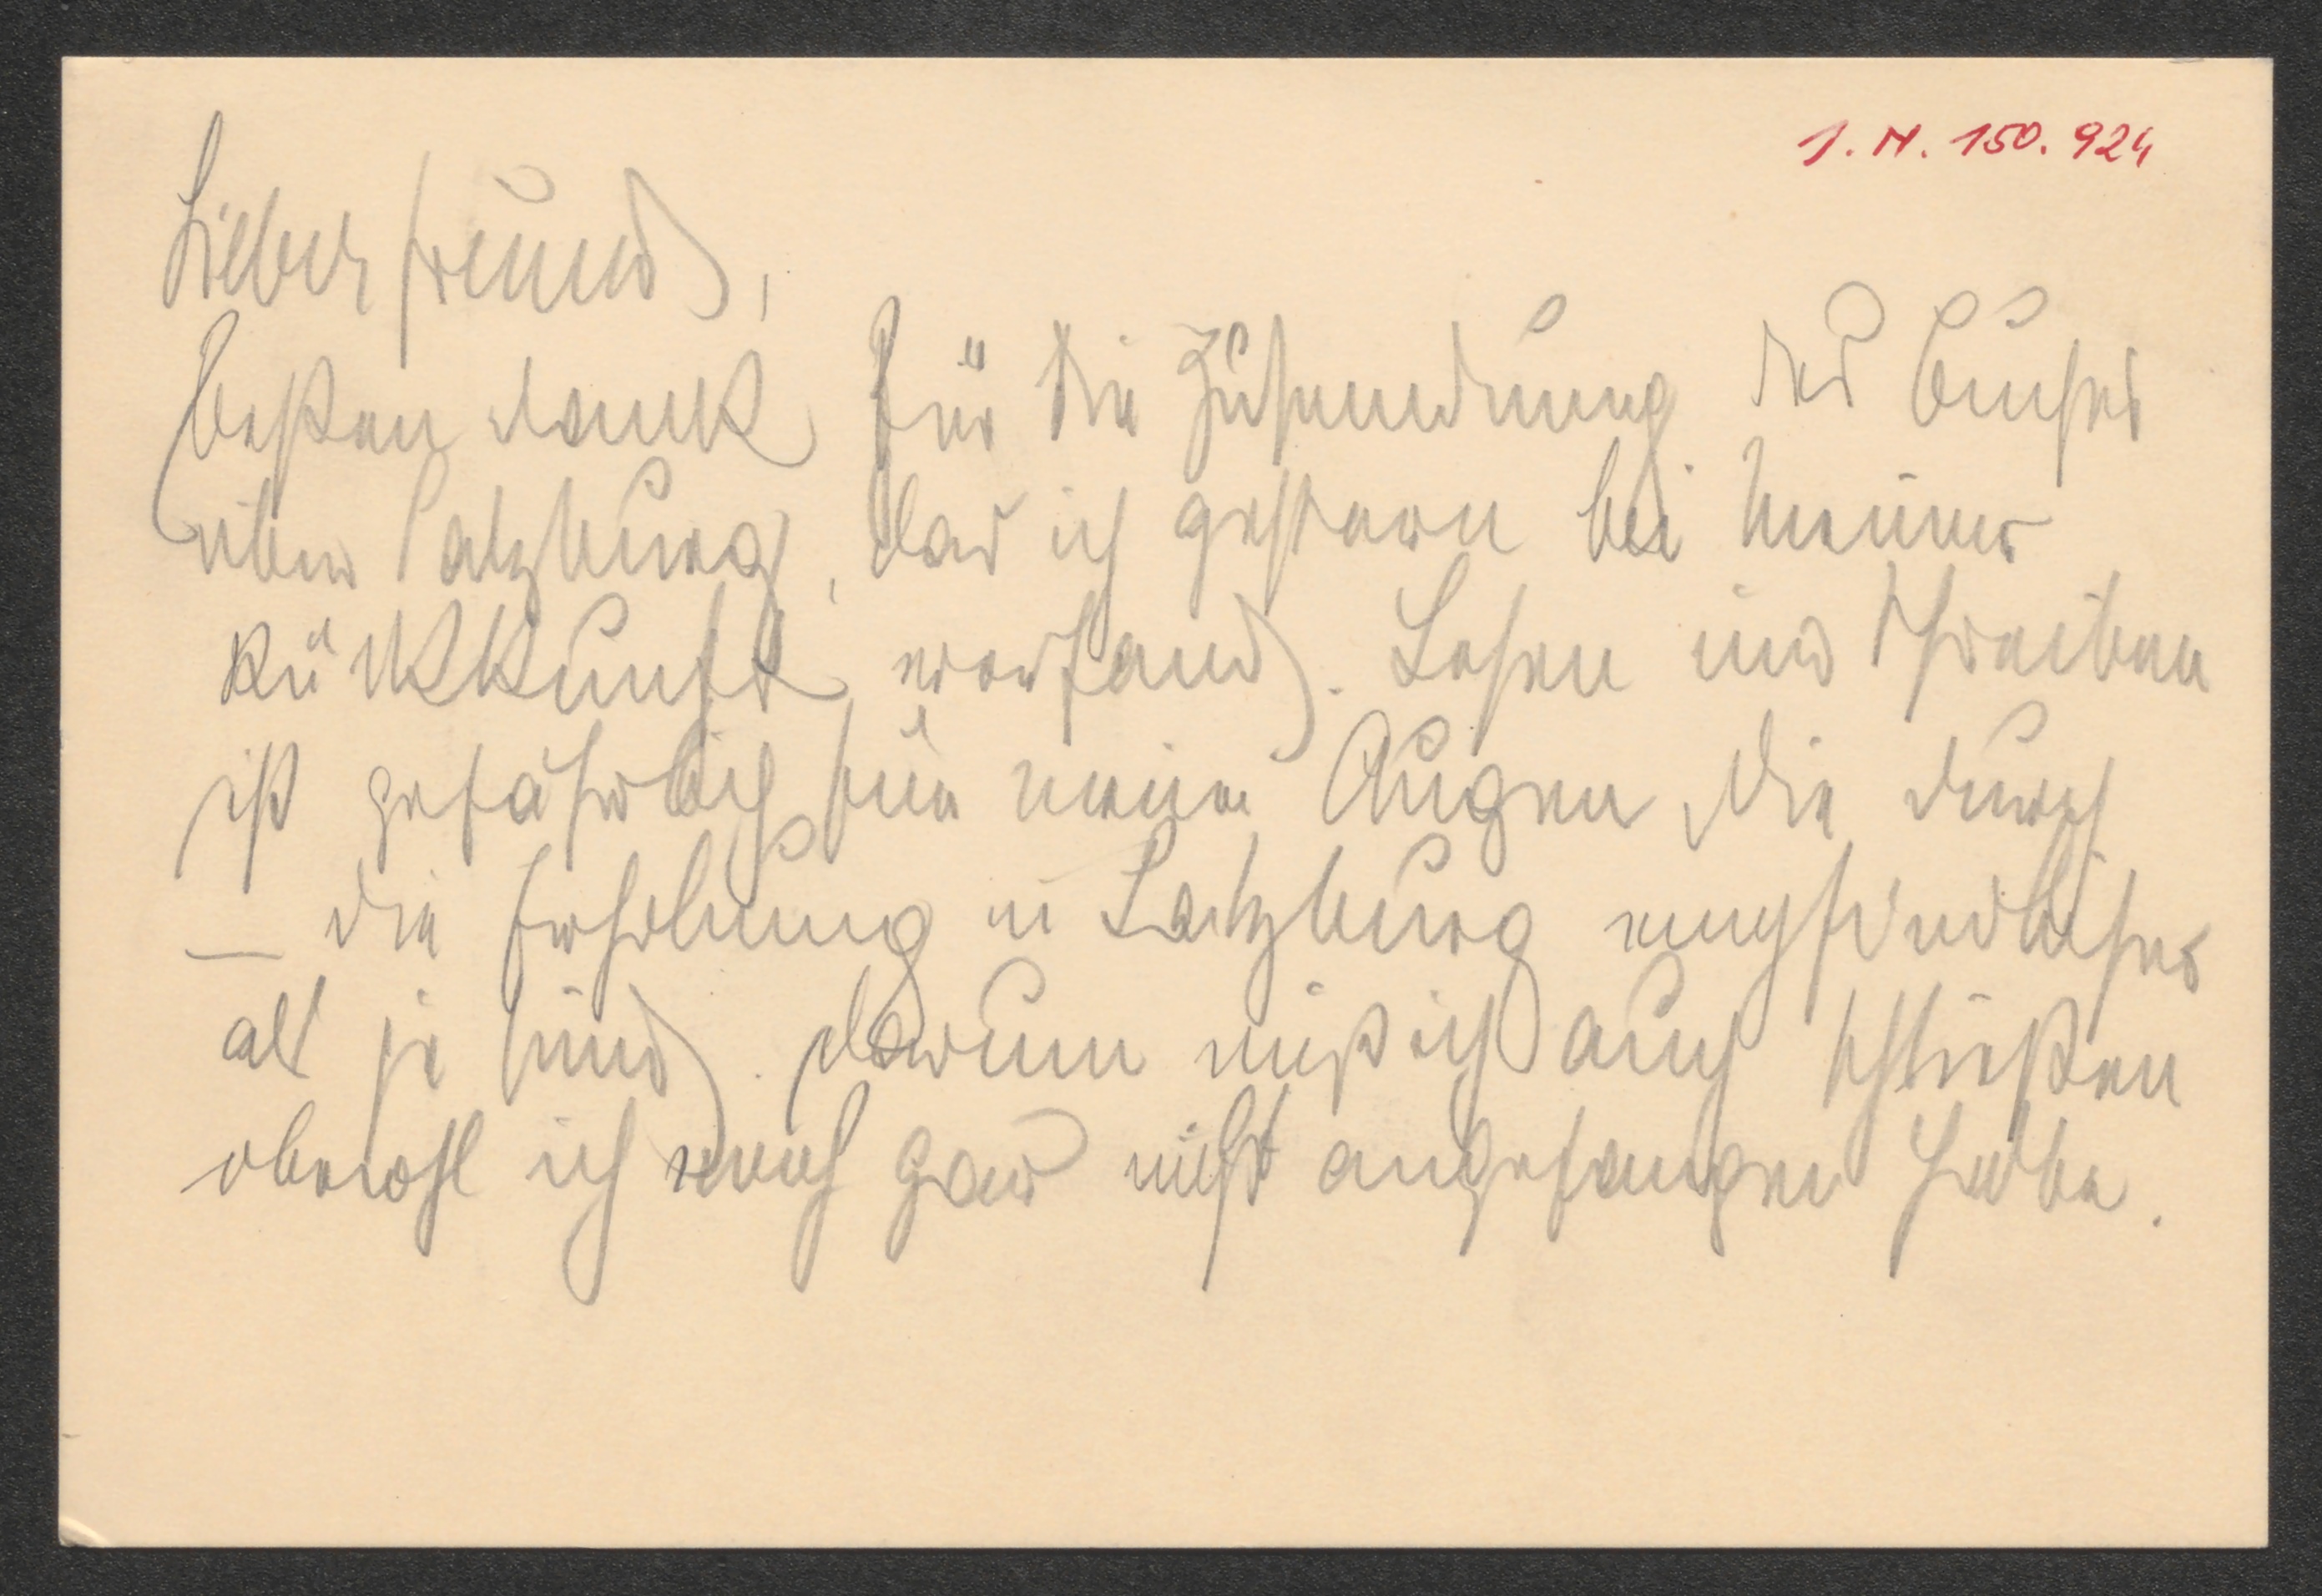 I. N. 150.924
Lieber freund,
besten dank für die Zusendung des buches
über Salzburg, das ich gestern bei meiner
Rückkunft vorfand. Lesen und schreiben
ist gefährlich für meine Augen die durch
– die Erholung in Salzburg empfindlicher
als je sind. darum muß ich auch schließen
obwohl ich noch gar nicht angefangen habe.